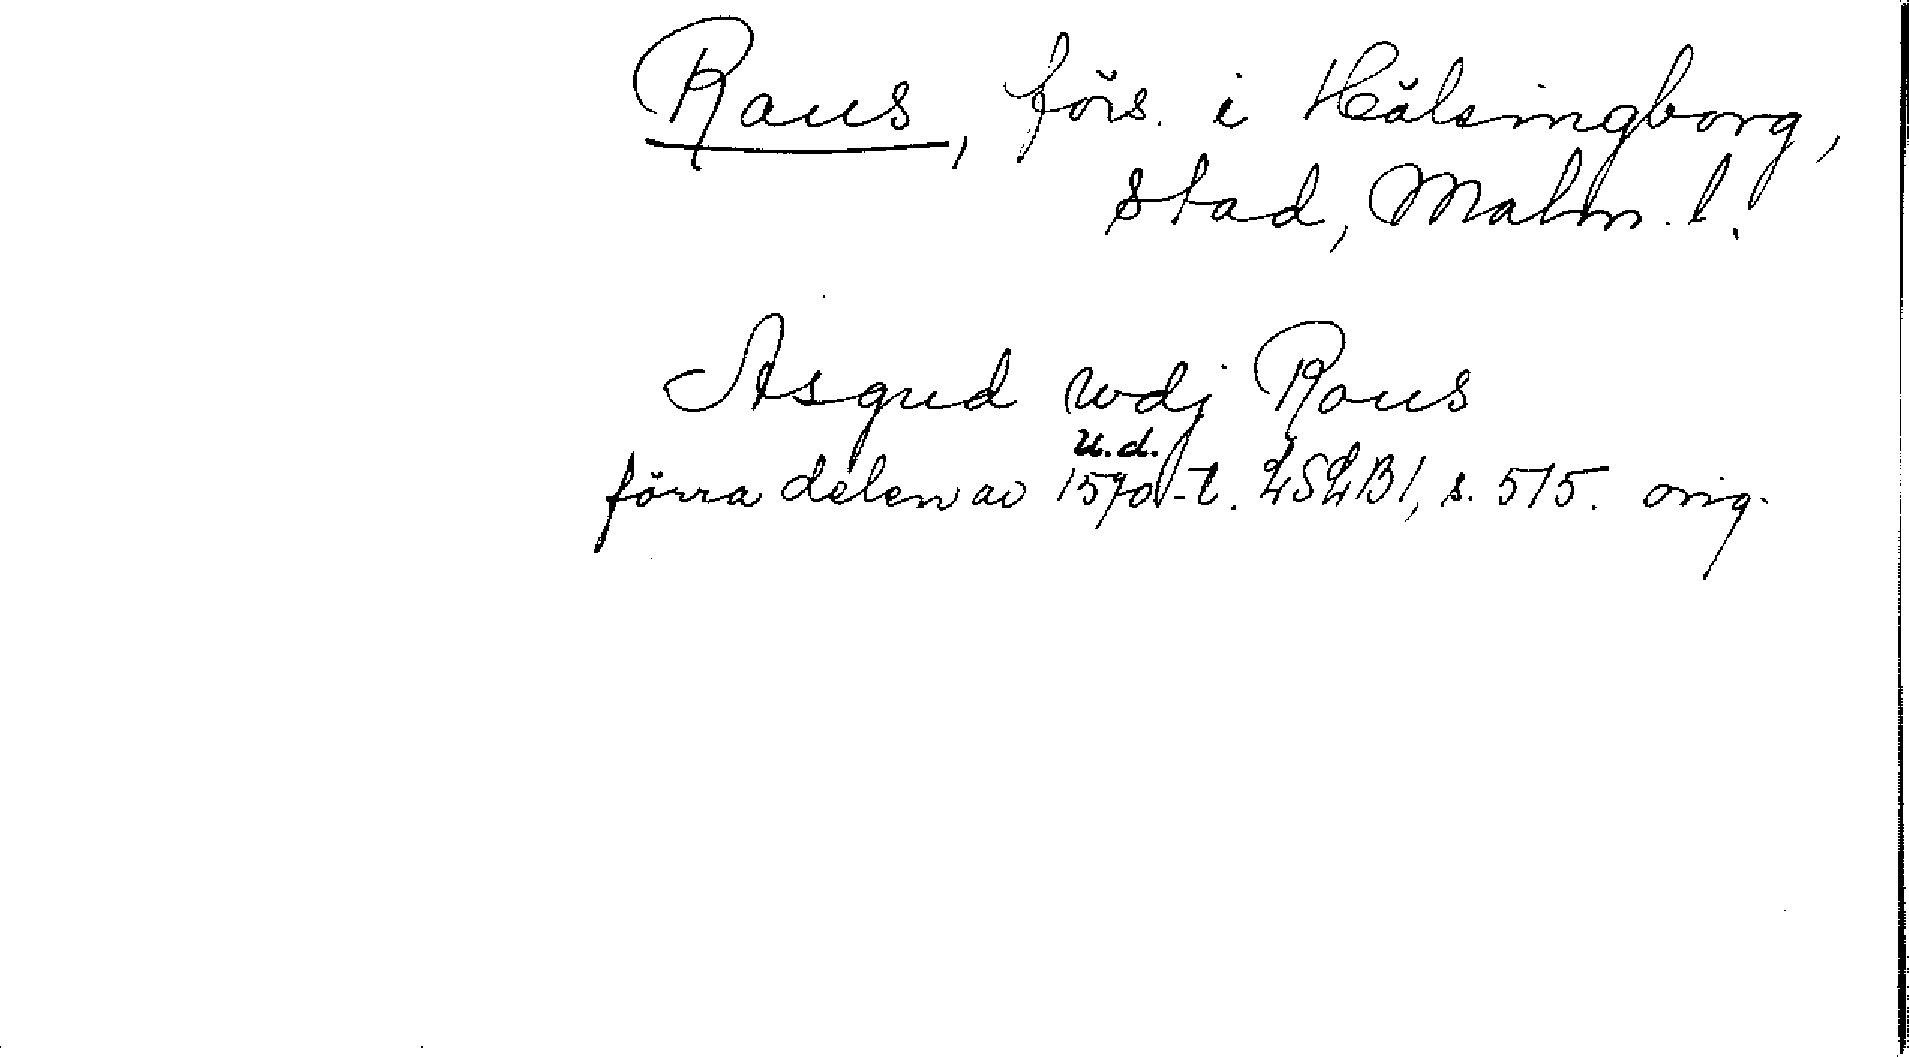 Raus, förs. i Hälsingborg,
stad, Malm. l.
Asgud wdj Raus
u.d.
förra delen av 1570-t. LSLB1, s. 515. orig.